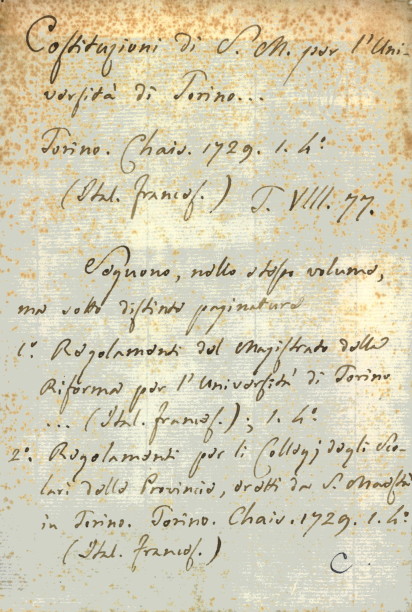 Costituzioni di S. M. per l'Uni-
versità di Torino...
Torino. Chais. 1729. 1. 4°
(Ital. frances.) T. VIII. 77.
Seguono, nello stesso volume,
ma sotto distinta paginatura
1°. Regolamenti del Magistrato della
Riforma per l'Università di Torino
... (Ital. frances.); 1. 4°
2°. Regolamenti per li Collegj degli Sco-
lari delle Provincie, eretti da S. Maestà
in Torino. Torino. Chais. 1729. 1. 4°
(Ital. frances.) C.